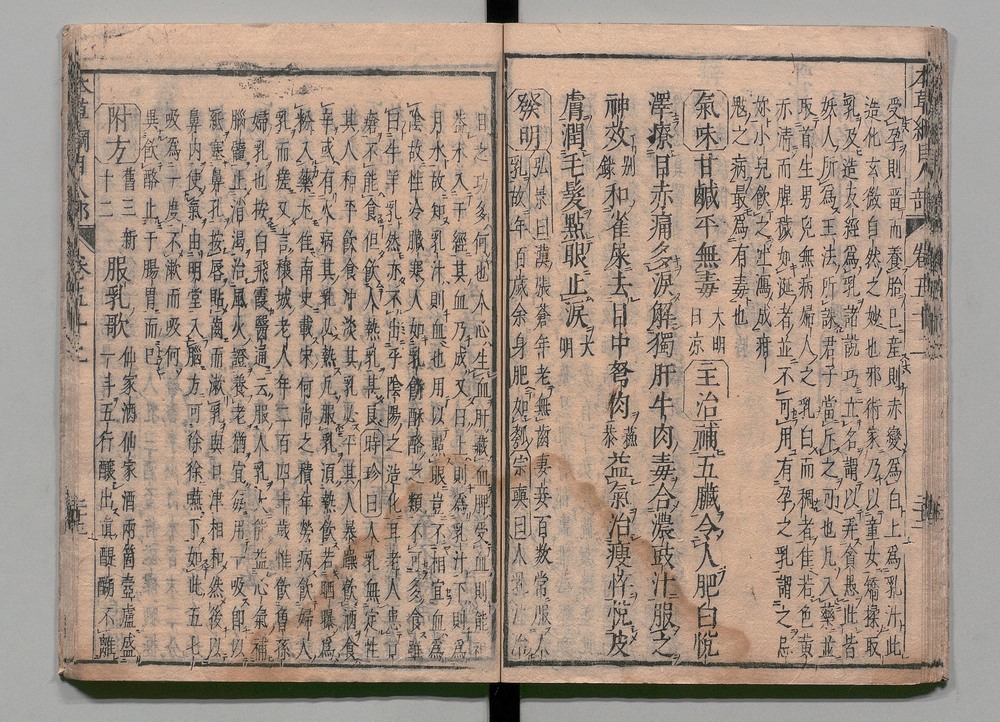 本草綱目人部 卷五十二
受孕則畱而養胎已產則赤變爲白上爲乳汁此
造化玄微自然之妙也邪術家乃以童女矯揉取
乳及造反經爲乳諸説巧立名謂以弄貪愚此皆
妖人所爲王法所誅君子當斥之可也凡入藥並
取首生男兒無病婦人之乳白而稠者佳若色黄
赤清而腥穢如涎者並不可用有孕之乳謂之忌
妳小兒飲之吐瀉成疳
魃之病最爲有毒也
氣味甘鹹平無毒大明曰涼主治補五臟令人肥白悦
澤療目赤痛多淚解獨肝牛肉毒合濃豉汁服之
神效别錄和雀屎去目中弩肉蘇恭益氣治瘦悴悦皮
膚潤毛髮點眼止淚大明
發明弘景曰漢張蒼年老無齒妻妾百數常服人
乳故年百歲余身肥如瓠宗奭曰人乳汁治
目之功多何也人心生血肝藏血肝受血則能視
蓋水入于經其血乃成又曰上則爲乳汁下則爲
月水故知乳汁則血也用以點眼豈不相宜血爲
陰故性冷臟寒人如乳餅酪之類不可多食雖
曰牛羊乳然亦不出乎陰陽之造化耳老人患口
瘡不能食但飲人熱乳甚良時珍曰人乳無定性
其人和平飲食冲淡其乳必平其人暴躁飲酒食
辛或有火病其乳必熱凡服乳須熱飲若晒曝爲
粉入藥尤佳南史載宋何尚之積年勞病飲婦人
乳而瘥又言穰城老人年二百四十歲惟飲曾孫
婦乳也按白飛霞醫通云服人乳大能益心氣補
腦髓止消渴治風火證養老猶宜每用一吸即以
紙塞鼻孔按唇貼齒而漱乳與口津相和然後以
鼻内使氣由明堂入腦方可徐徐嚥下如此五七
吸爲一度不漱而吸何
異飲酪止于腸胃而已
附方舊三新十二服乳歌仙家酒仙家酒兩箇壺盧盛
一斗五行釀出眞醍醐不離
本草綱目人部 卷五十二